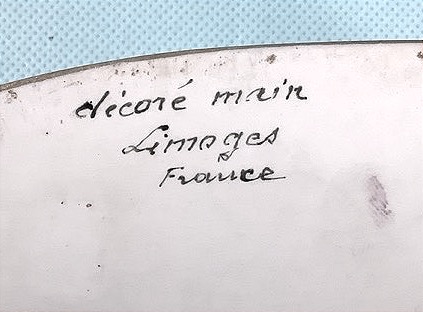 décoré main
Limoges
France